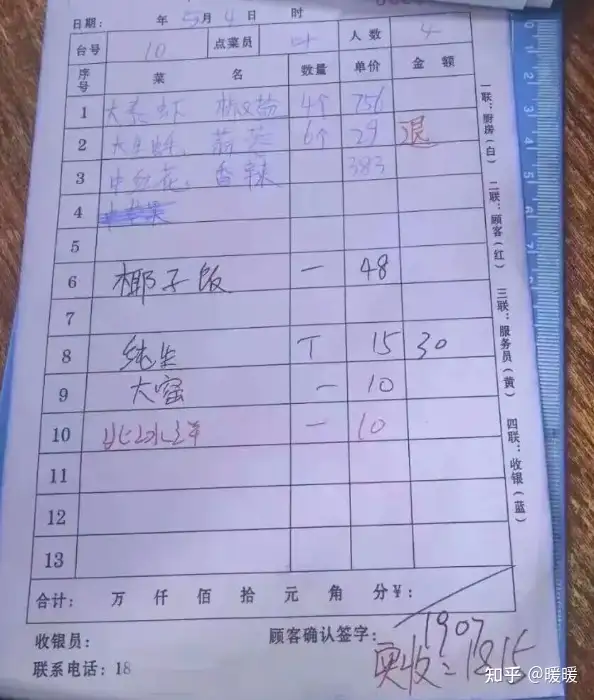 日期： 年 5月 4日 时
台号 10 点菜员 叶 人数 4
序号 菜名 数量 单价 金额
1 大 虾 椒盐 4个 756
2 大生蚝、蒜 6个 29 退
3 中 花、香辣 383
4
5
6 椰子饭 一 48
7
8 纯生 T 15 30
9 大窑 一 10
10 北冰洋 一 10
11
12
13
一联：厨房（白） 二联：顾客（红） 三联：服务员（黄） 四联：收银（蓝）
合计： 万 仟 佰 拾 元 角 分￥：
收银员： 顾客确认签字： 1907
联系电话：18 实收=1815
知乎 @暖暖